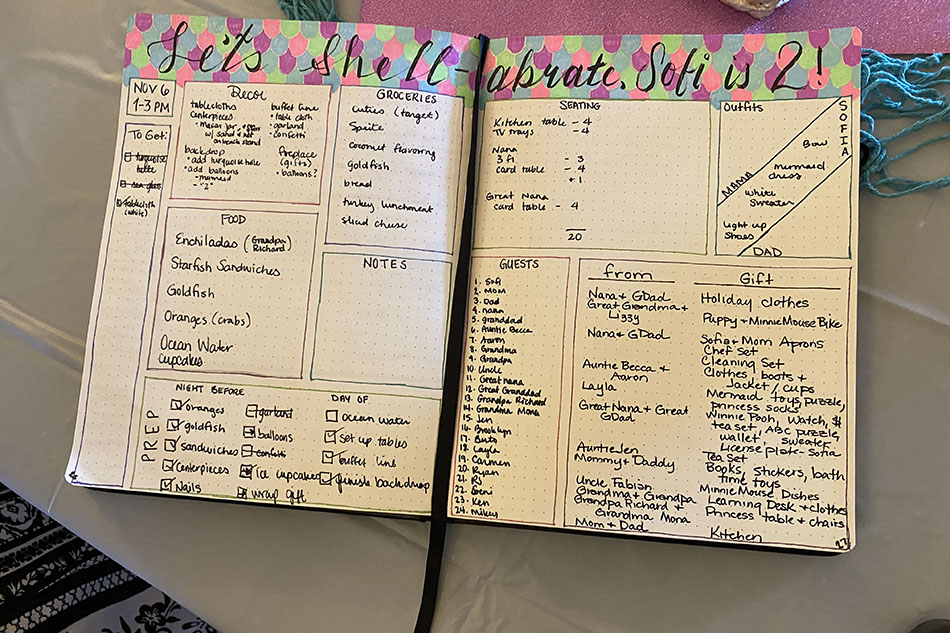 Let's Shell-abrate, Sofi is 2!
NOV 6
1-3 PM
To Get:
turquoise
tulle
sea glass
tablecloth
(white)
Decor
tablecloths
centerpieces
- mason jar
w/ sand + net
on beach stand
backdrop
- add turquoise tulle
- add balloons
- mermaid
- "2"
buffet line
• table cloth
• garland
• confetti
fireplace
(gifts)
• balloons?
GROCERIES
cuties (target)
Sprite
coconut flavoring
goldfish
bread
turkey lunchmeat
sliced cheese
FOOD
Enchiladas (Grandpa
Richard)
Starfish Sandwiches
Goldfish
Oranges (crabs)
Ocean Water
cupcakes
NOTES
PREP
NIGHT BEFORE
oranges
goldfish
sandwiches
centerpieces
Nails
garland
balloons
confetti
Ice cupcakes
wrap gift
DAY OF
ocean water
set up tables
buffet line
finish backdrop
SEATING
Kitchen table - 4
TV trays - 4
Nana
3 fl - 3
card table - 4
+ 1
Great Nana
card table - 4
20
Outfits
SOFIA
Bow
mermaid
dress
MAMA
white
sweater
light up
shoes
DAD
GUESTS
1. Sofi
2. Mom
3. Dad
4. nana
5. granddad
6. Auntie Becca
7. Aaron
8. Grandma
9. Grandpa
10. Uncle
11. Great nana
12. Great Granddad
13. Grandpa Richard
14. Grandma Mona
15. Jen
16. Brooklyn
17.
18. Layla
19. Carmen
20. Ryan
21. RJ
22.
23. Ken
24. Mikey
from
Gift
Nana + GDad
Holiday clothes
Great Grandma +
Lizzy
Puppy + Minnie Mouse Bike
Nana + GDad
Sofia + Mom Aprons
Chef Set
Cleaning Set
Auntie Becca +
Aaron
Clothes, boots +
Jacket / cups
Layla
Mermaid toys, puzzle,
princess socks
Great Nana + Great
GDad
Winnie Pooh, Watch, $
tea set, ABC puzzle,
wallet, sweater
License plate - Sofia
Auntie Jen
Tea Set
Mommy + Daddy
Books, stickers, bath
time toys
Uncle Fabian
Minnie Mouse Dishes
Grandma + Grandpa
Learning Desk + clothes
Grandpa Richard +
Grandma Mona
Princess table + chairs
Mom + Dad
Kitchen